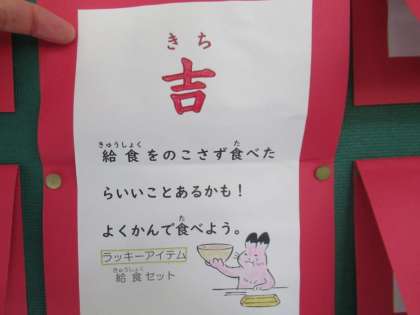 きち
吉
きゅうしょく　た
給食をのこさず食べた
らいいことあるかも！
た
よくかんで食べよう。
ラッキーアイテム
きゅうしょく
給食セット